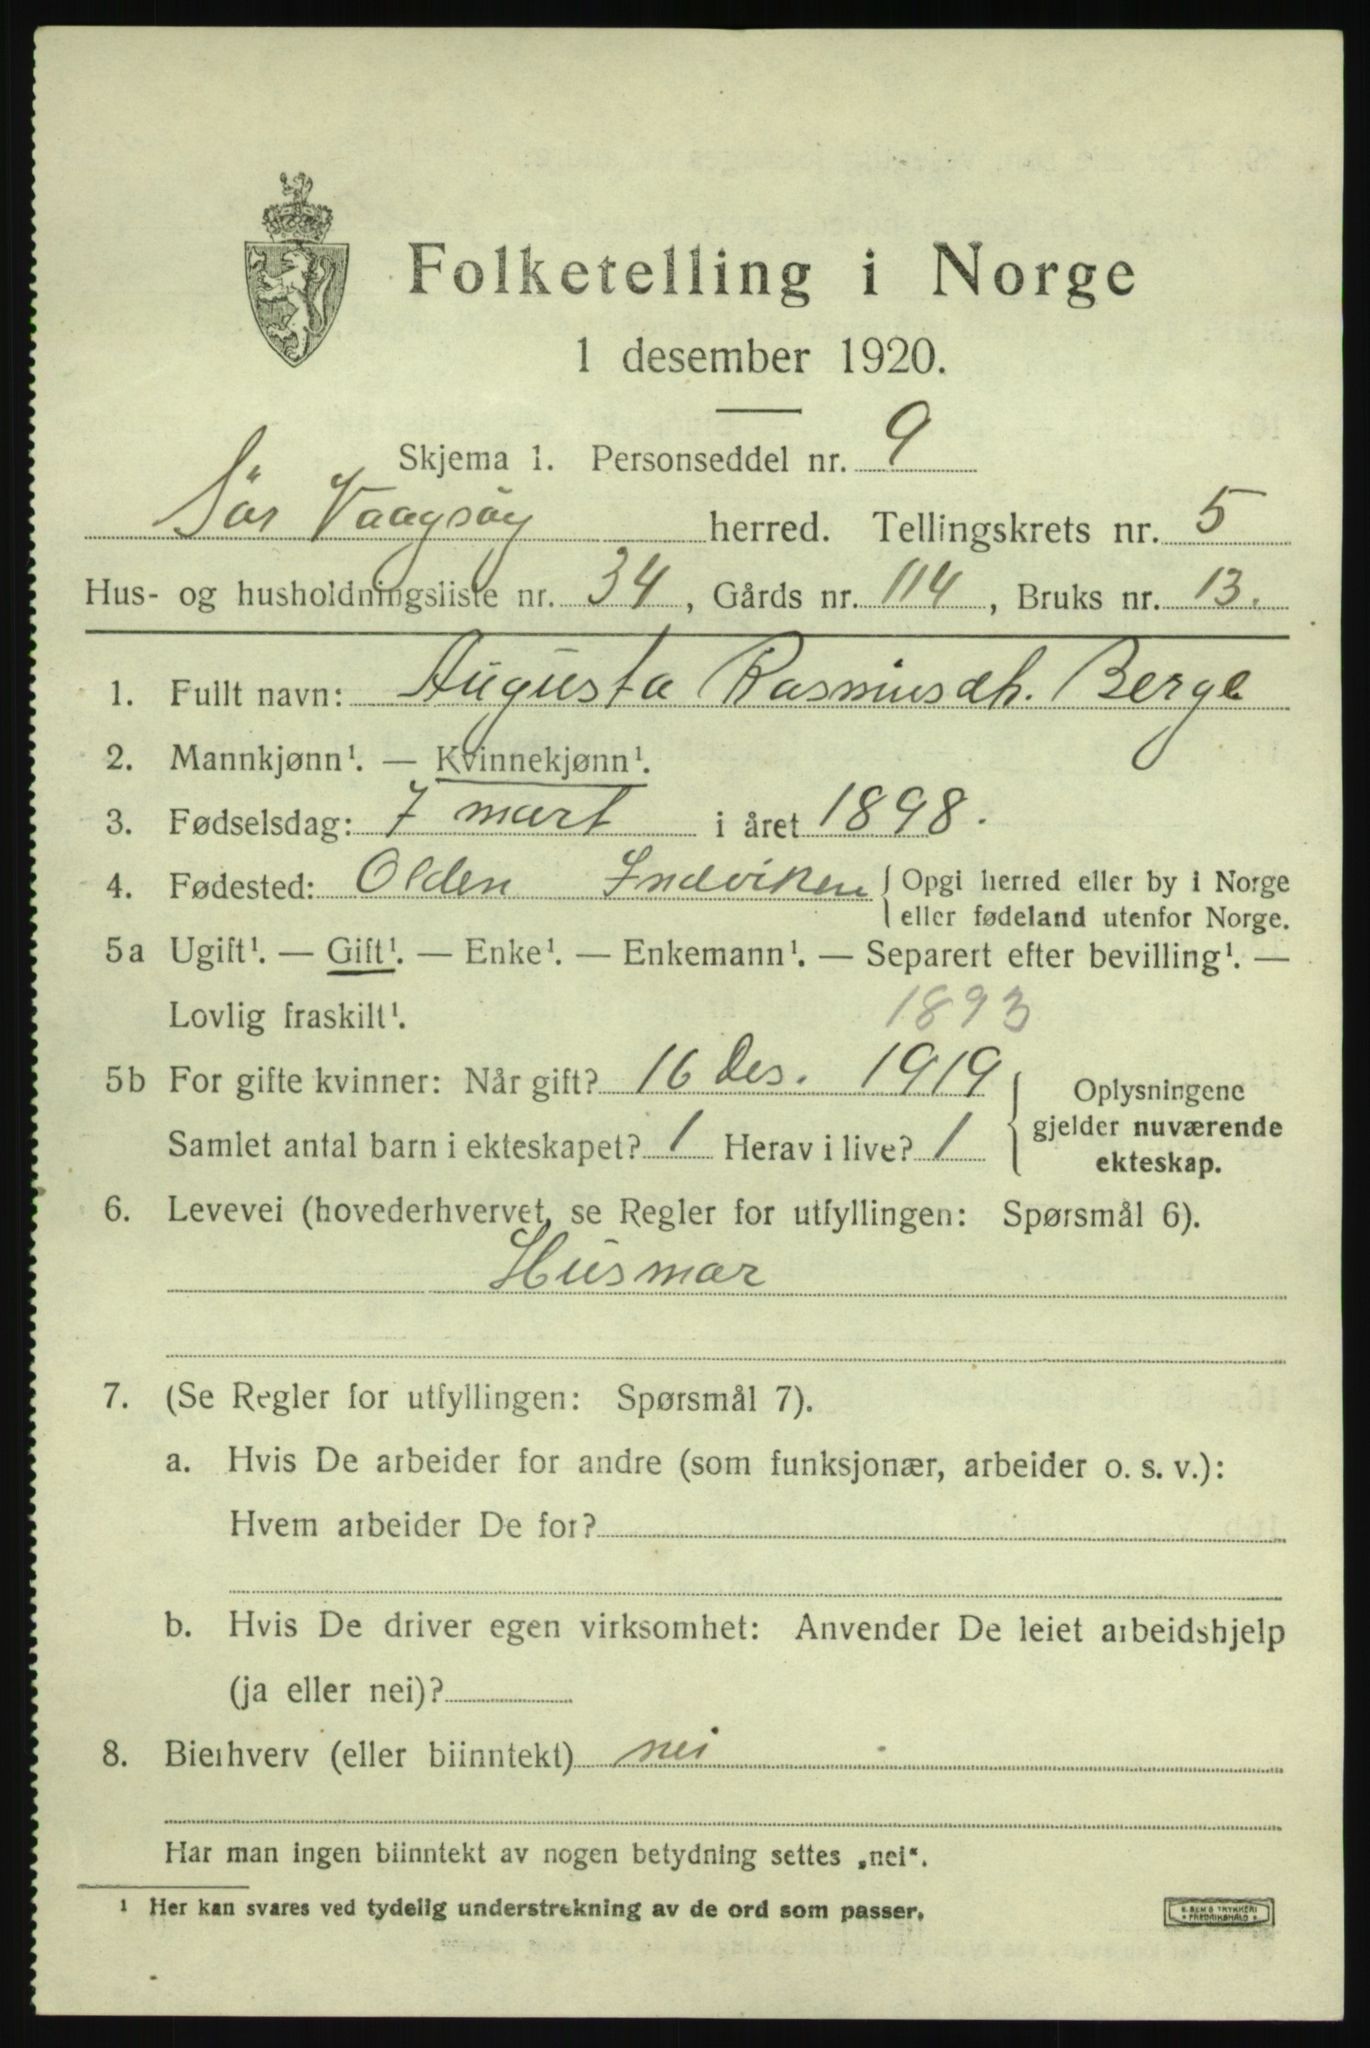 Folketelling i Norge
1 desember 1920.
Skjema 1. Personseddel nr. 9
Sör Vaagsöy herred. Tellingskrets nr. 5
Hus- og husholdningsliste nr. 34, Gårds nr. 114, Bruks nr. 13.
1. Fullt navn: Augusta Rasmusdh. Berge
2. Mannkjønn¹. — Kvinnekjønn¹.
3. Fødselsdag: 7 mart i året 1898.
4. Fødested: Olden Indviken { Opgi herred eller by i Norge
eller fødeland utenfor Norge.
5a Ugift¹. — Gift¹. — Enke¹. — Enkemann¹. — Separert efter bevilling¹. —
Lovlig fraskilt¹. 1893
5b For gifte kvinner: Når gift? 16 Des. 1919
Samlet antal barn i ekteskapet? 1 Herav i live? 1
Oplysningene
gjelder nuværende
ekteskap.
6. Levevei (hovederhvervet, se Regler for utfyllingen: Spørsmål 6).
Husmor
7. (Se Regler for utfyllingen: Spørsmål 7).
a. Hvis De arbeider for andre (som funksjonær, arbeider o. s. v.):
Hvem arbeider De for?
b. Hvis De driver egen virksomhet: Anvender De leiet arbeidshjelp
(ja eller nei)?
8. Bierhverv (eller biinntekt) nei
Har man ingen biinntekt av nogen betydning settes „nei“.
¹ Her kan svares ved tydelig understrekning av de ord som passer.